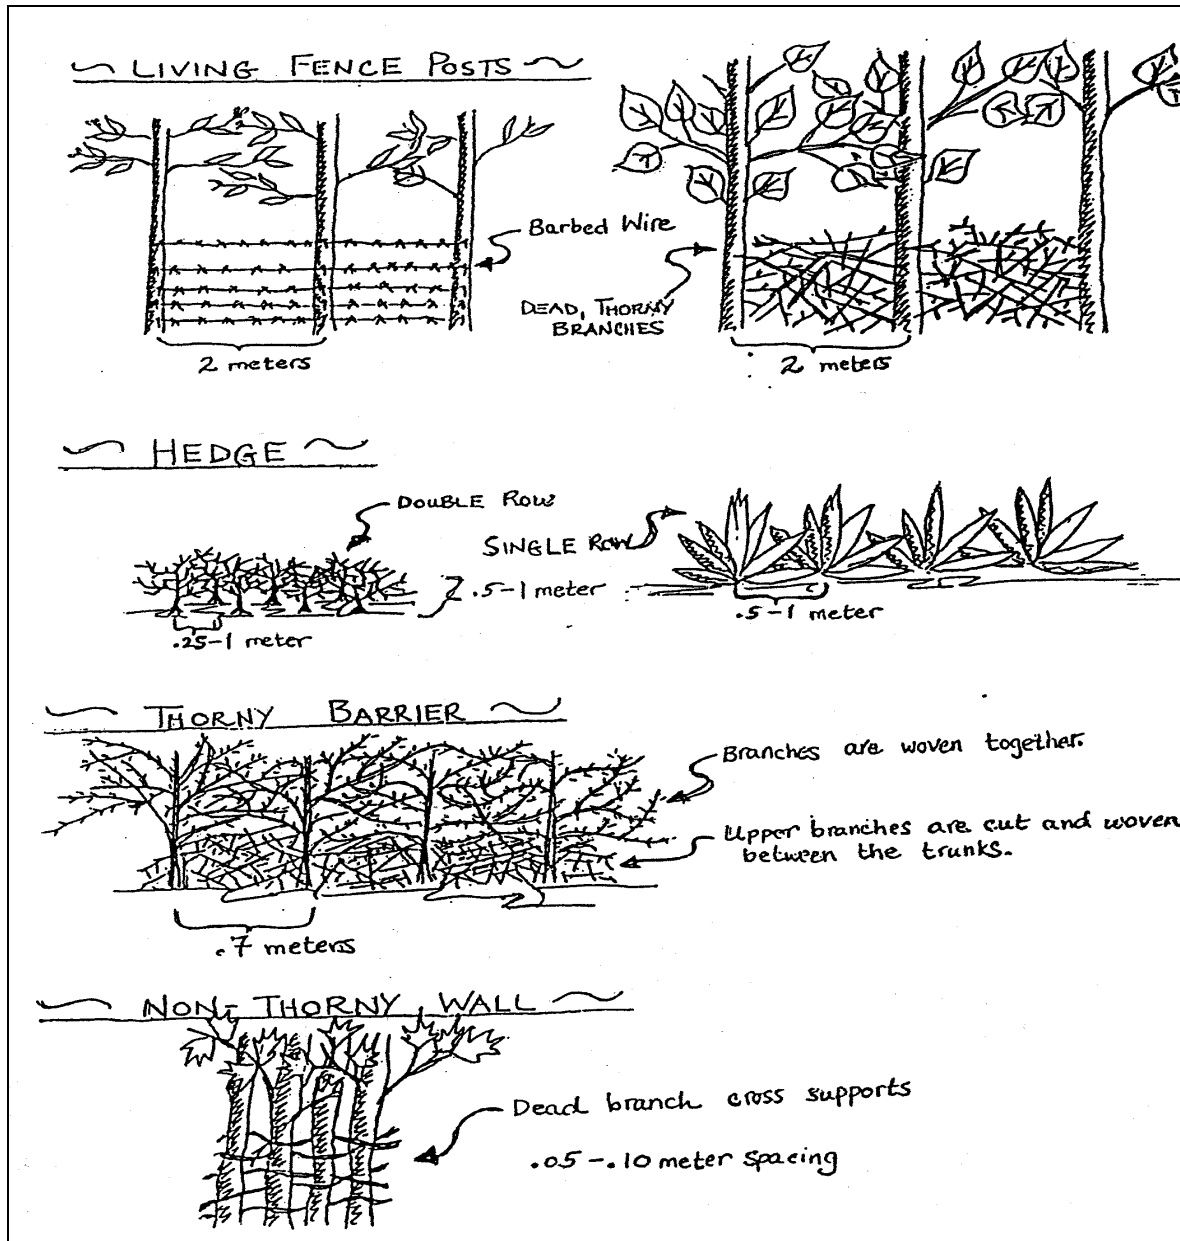 LIVING FENCE POSTS
Barbed Wire
DEAD, THORNY
BRANCHES
2 meters
2 meters
HEDGE
DOUBLE ROW
SINGLE ROW
.5-1 meter
.25-1 meter
.5-1 meter
THORNY BARRIER
Branches are woven together.
Upper branches are cut and woven
between the trunks.
.7 meters
NON-THORNY WALL
Dead branch cross supports
.05-.10 meter spacing